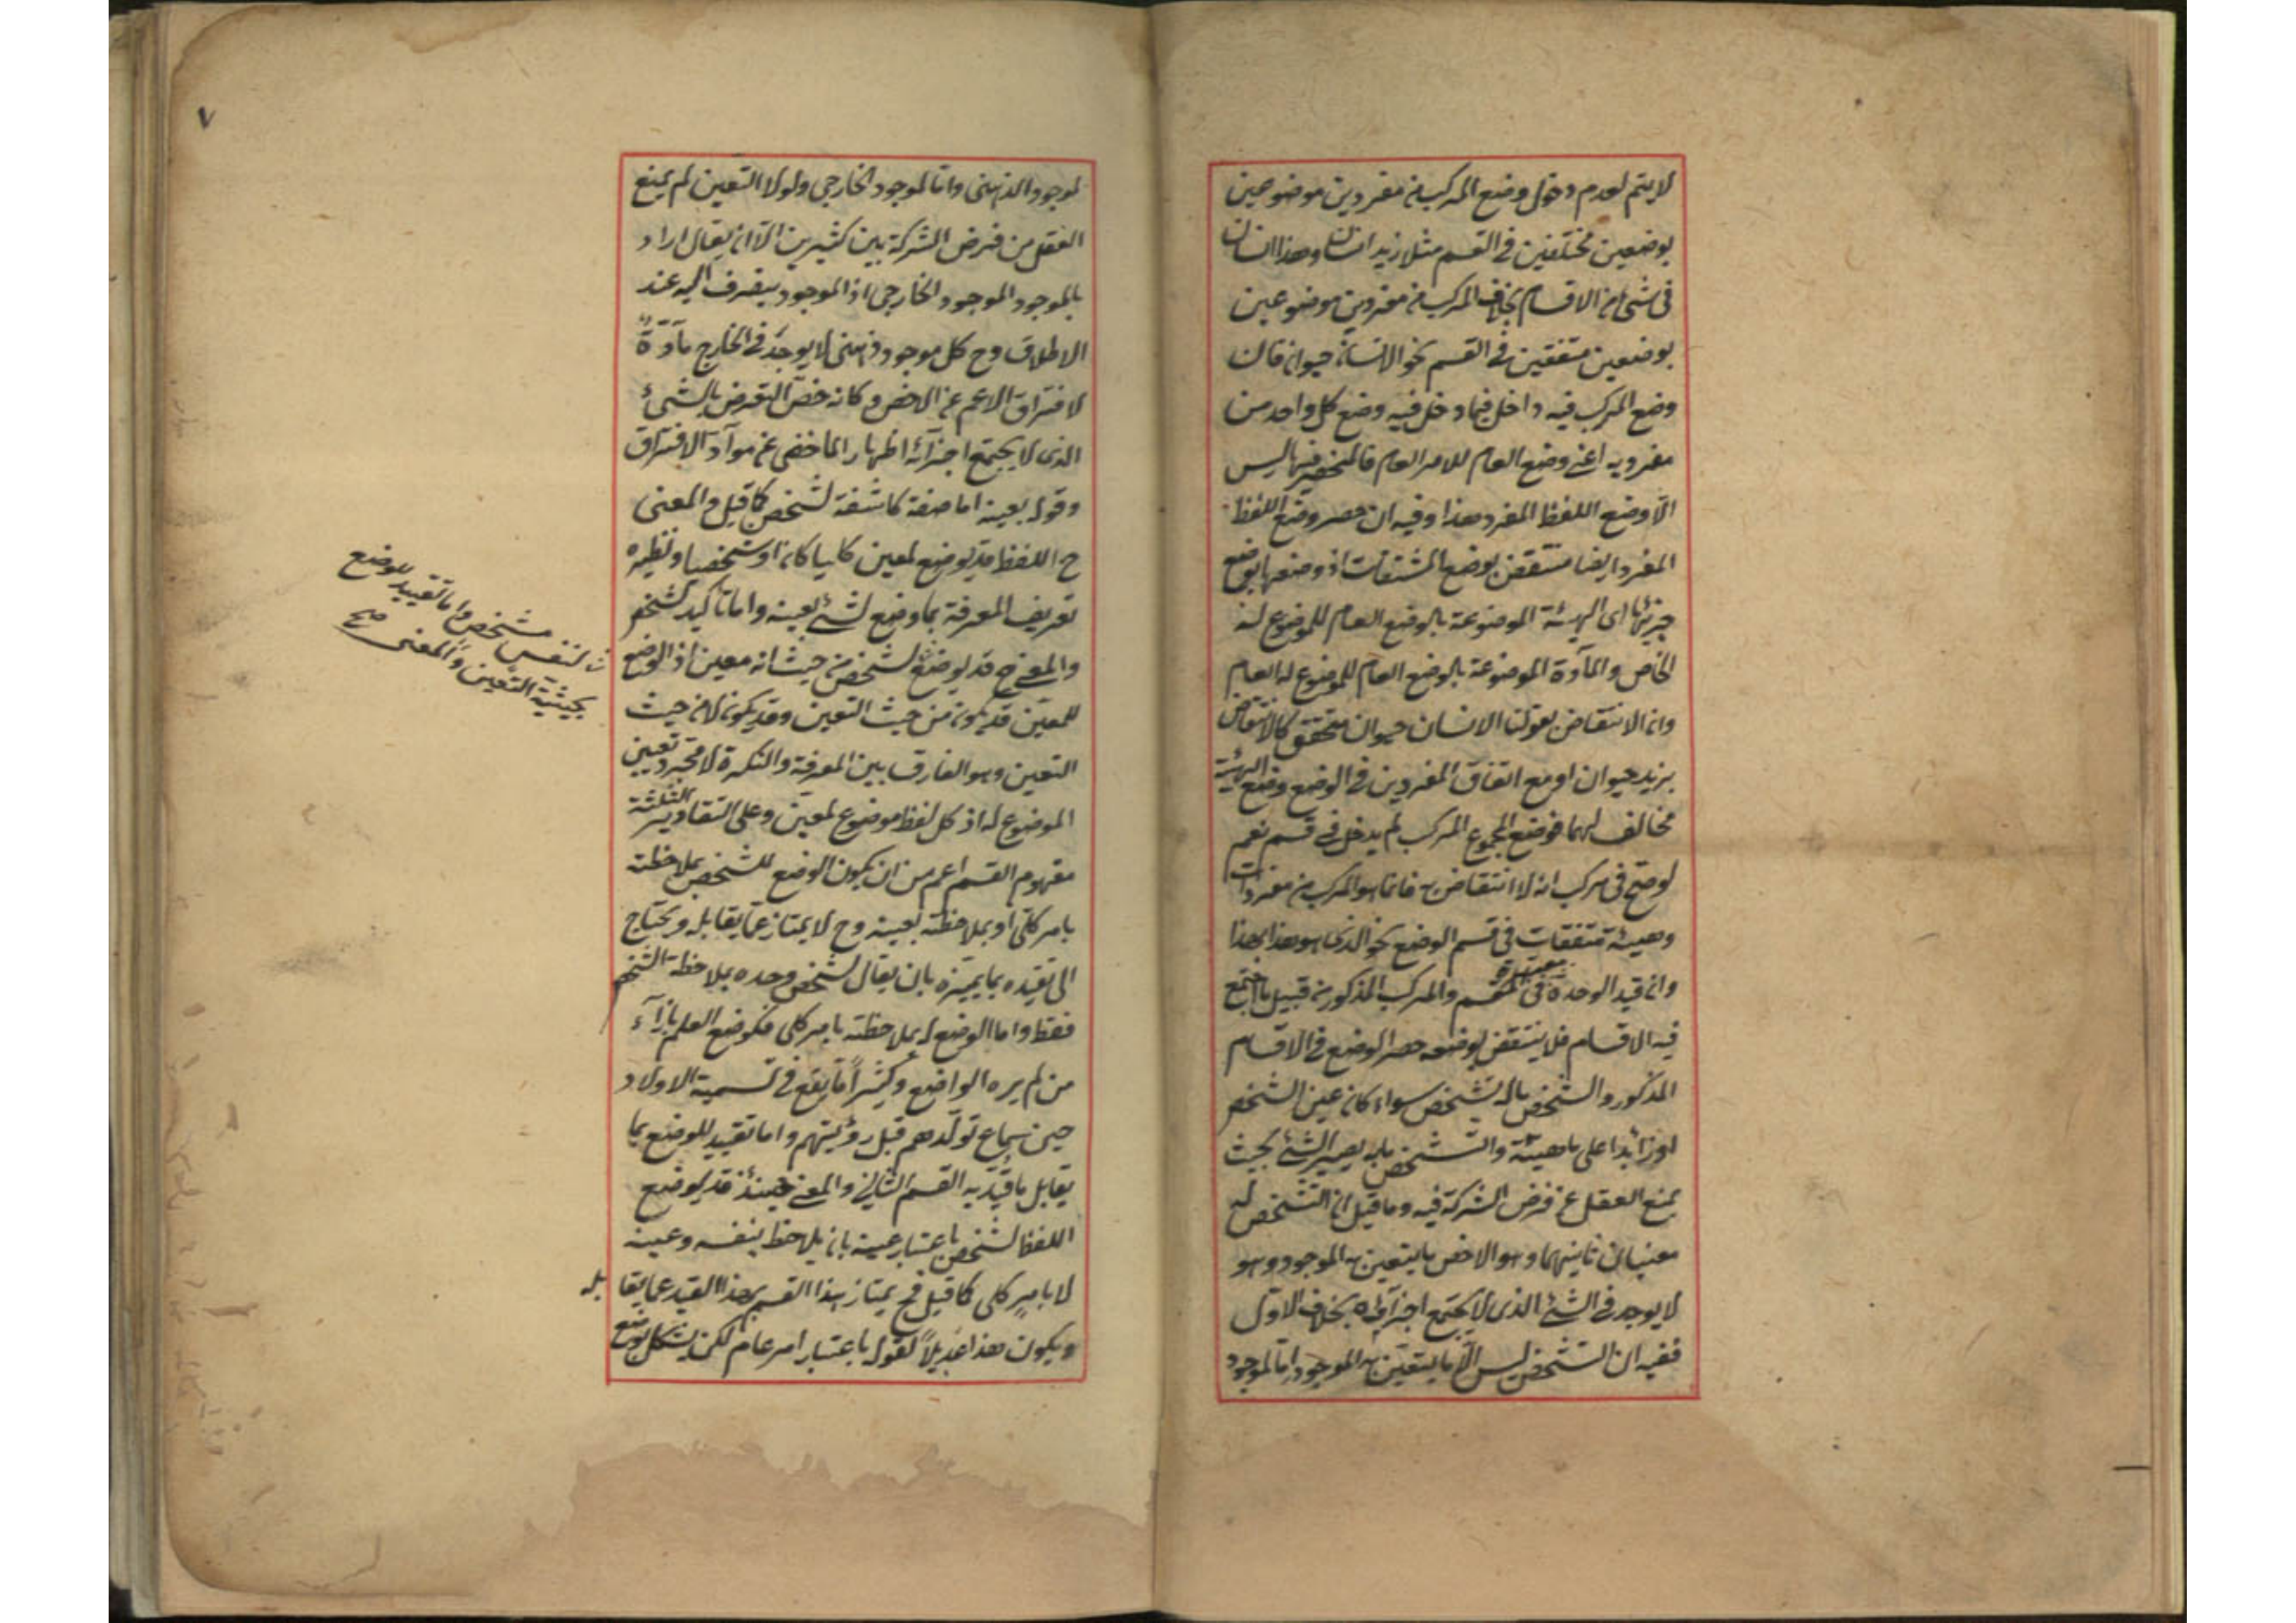 لا يتم لعدم دخول وضع المركب من مفردين موضوعين
بوضعين مختلفين في القسم مثلا زيد انسان وهذا انسان
في شئ من الاقسام بخلاف المركب من مفردين موضوعين
بوضعين متفقين في القسم نحو الانسان حيوان فان
وضع المركب فيه داخل فيما دخل فيه وضع كل واحد من
مفرديه اعني وضع العام للامر العام فالمنحصر فيها ليس
الا وضع اللفظ المفرد هذا وفيه ان حصر وضع اللفظ
المفرد ايضا منتقض بوضع المشتقات اذ وضعها بوضع
جزئها اى الهيئة الموضوعة بالوضع العام للموضوع له
الخاص والمآدة الموضوعة بالوضع العام للموضوع له العام
وان الانتقاض بقولنا الانسان حيوان متحقق كالانتقاض
بزيد حيوان او مع اتفاق المفردين في الوضع وضع الهيئة
مخالف لهما فوضع المجموع المركب لم يدخل في قسم نعم
لو صح في مركب انه لا انتقاض به فانما هو المركب من مفردات
وهيئة متفقات في قسم الوضع نحو الذى هو هذا بهذا
وان قيد الوحدة معتبرة في المقسم والمركب المذكور من قبيل ما اجتمع
فيه الاقسام فلا ينتقض بوضعه حصر الوضع في الاقسام
المذكور والشخص ماله تشخص سواء كان عين الشخص
او زائدا على ماهيته والتشخص ما به يصير الشئ بحيث
يمنع العقل عن فرض الشركة فيه وما قيل ان التشخص له
معنيان ثانيهما وهو الاخص ما يتعين به الموجود وهو
لا يوجد في الشئ الذى لا يجتمع اجزآؤه بخلاف الاول
ففيه ان التشخص ليس الا ما يتعين به الموجود اما الموجود
٧
لموجود الذهنى واما الموجود الخارجى ولولا التعين لم يمنع
العقل من فرض الشركة بين كثيرين الا ان يقال اراد
بالموجود الموجود الخارجى اذ الموجود ينصرف اليه عند
الاطلاق وح كل موجود ذهنى لا يوجد في الخارج مآدة
لافتراق الاعم عن الاخص وكانه خص التعرض بالشئ
الذى لا يجتمع اجزآئه اظهارا لما خفى من موآد الافتراق
وقوله بعينه اما صفة كاشفة لشخص كما قيل والمعنى
ح اللفظ قد يوضع لمعين كليا كان او شخصيا ونظيره
تعريف المعرفة بما وضع لشئ بعينه واما تأكيد لشخص
والمعنى ح قد يوضع لشخص من حيث انه معين اذ الوضع
للمعين قد يكون من حيث التعين وقد يكون لا من حيث
التعين وهو الفارق بين المعرفة والنكرة لا مجرد تعيين
الموضوع له اذ كل لفظ موضوع لمعين وعلى التقادير الثلثة
مفهوم القسم اعم من ان يكون الوضع للشخص بملاحظته
بامر كلى او بملاحظته بعينه وح لا يمتاز عما يقابله ويحتاج
الى تقيده بما يميزه بان يقال لشخص وحده بملاحظة الشخص
فقط واما الوضع له بملاحظته بامر كلى فكوضع العلم بازآء
من لم يره الواضع وكثيرا ما يقع في تسمية الاولاد
حين سماع تولدهم قبل رؤيتهم واما تقييد للوضع بما
يقابل ما قيد به القسم الثانى والمعنى حينئذ قد يوضع
اللفظ لشخص باعتبار عينه بان يلاحظ بنفسه وعينه
لا بامر كلى كما قيل فح يمتاز هذا القسم بهذا القيد عما يقابله
ويكون هذا عديلا لقوله باعتبار امر عام لكن يشكل بوضع
لنفس مشخص واما تقييد للوضع
بحيثية التعين والمعنى صح